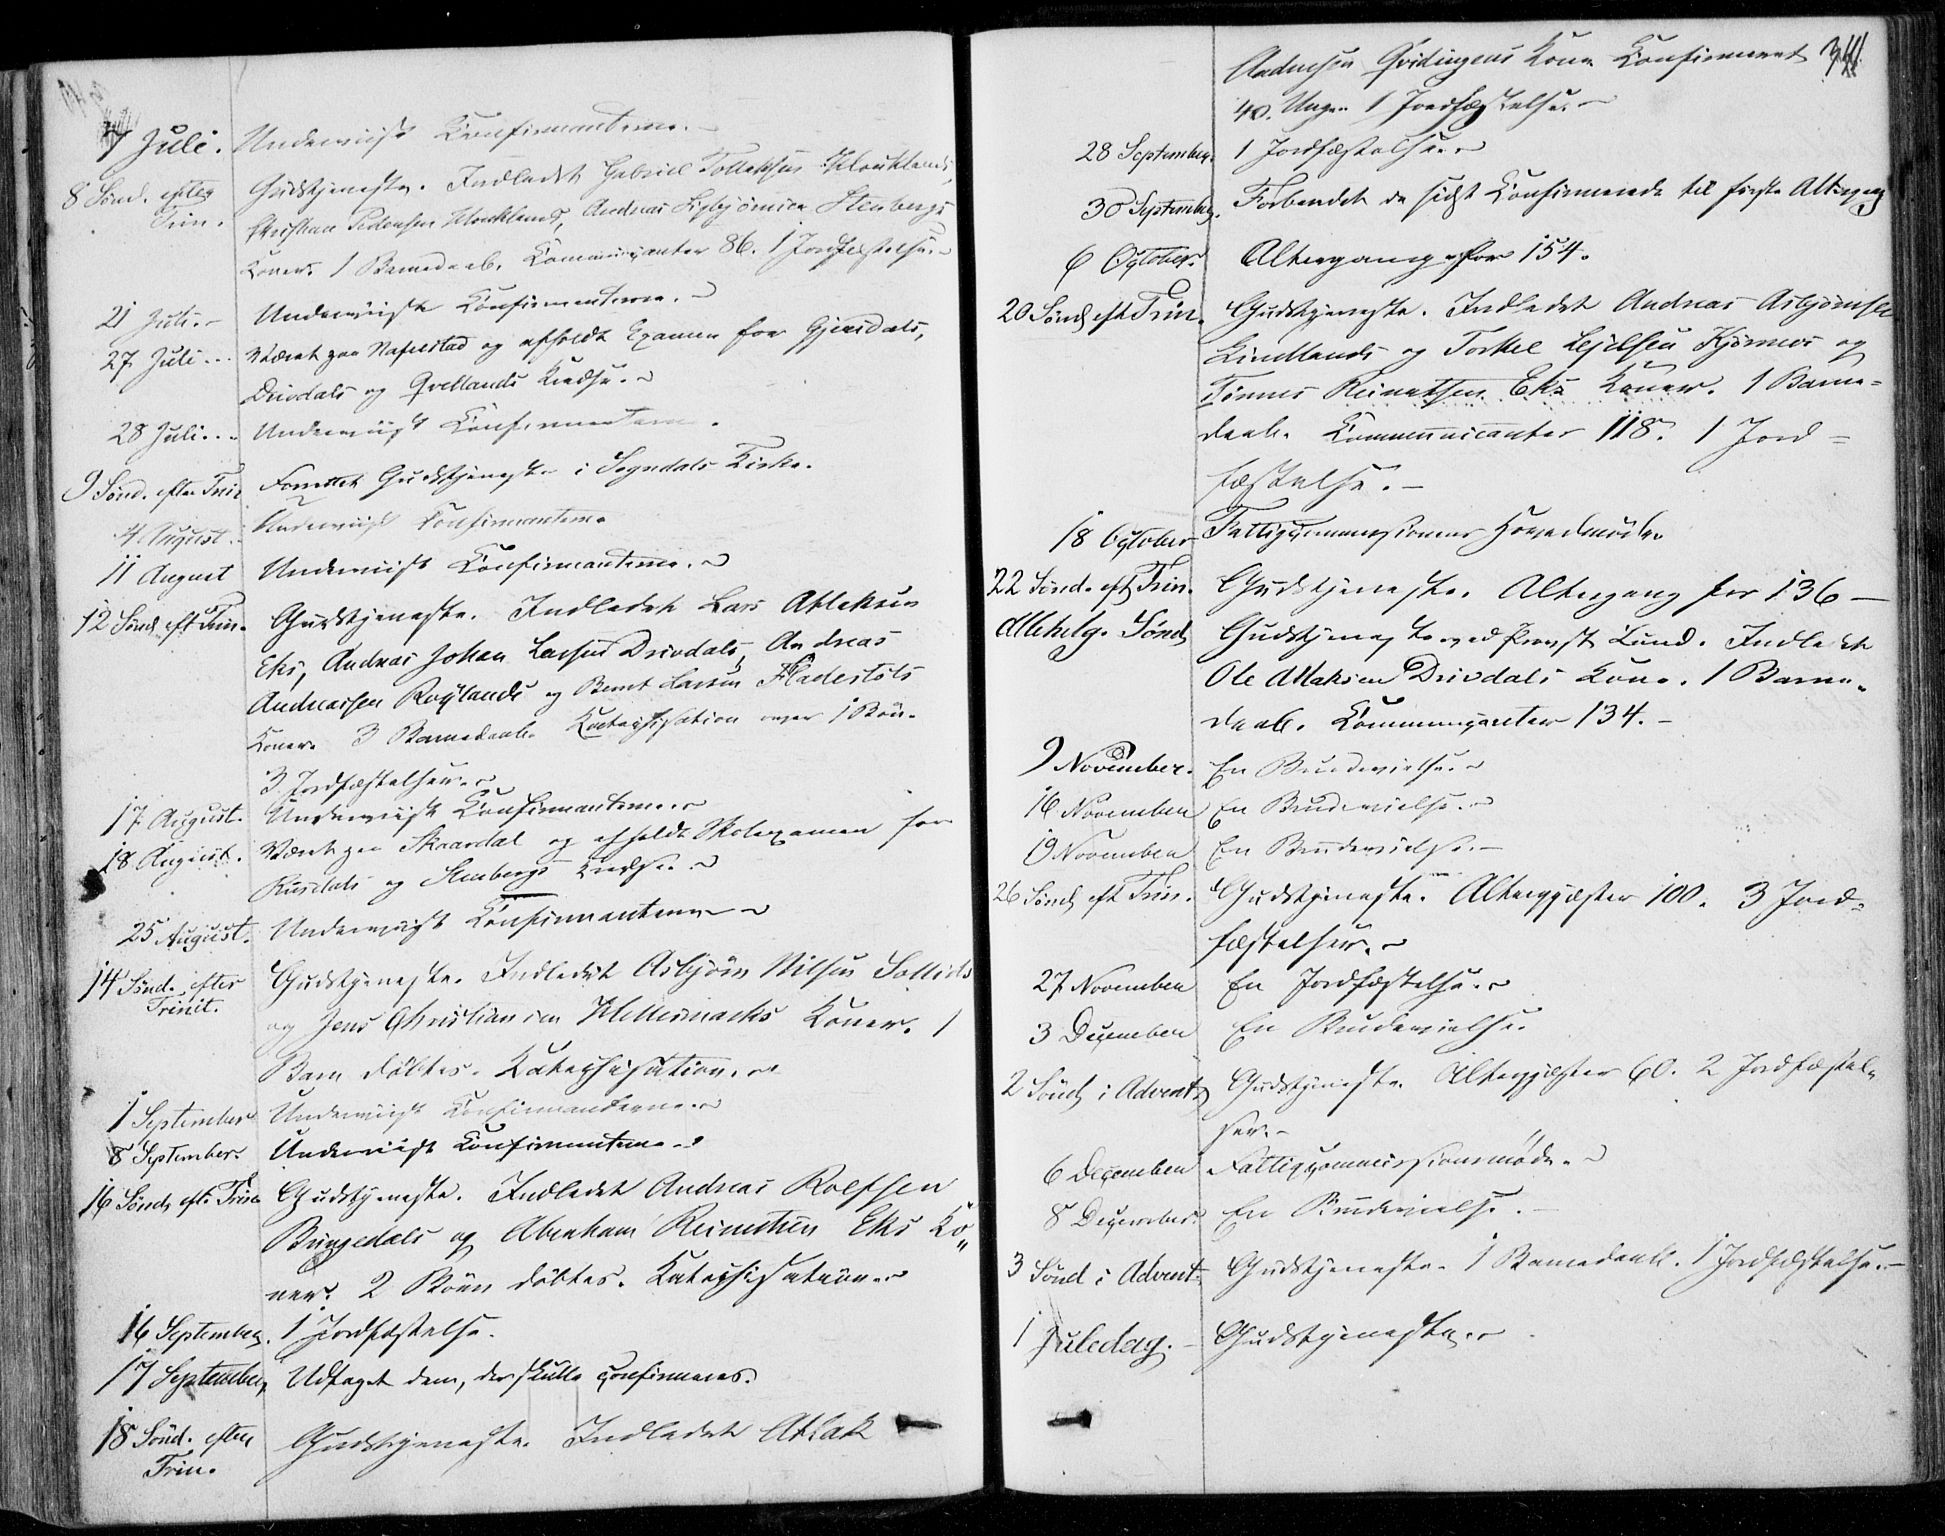 7 Juli. Underviist Confirmanterne.
8 Sønd. efter Gudstjeneste. Indledet Gabriel Tollaksens
Trin. Christian Pedersen Andreas Stenbergs
Koner. 1 Barnedaab. Communicanter 86. 1 Jordfæstelse.
21 Juli. Underviiste Confirmanterne.
27 Juli. Været paa Nafrestad og afholdt Examen for Gjersdals,
Drivdals og Qvellands Kredse.
28 Juli. Underviist Confirmanterne.
9 Sønd. efter Trin. Forrettet Gudstjeneste i Sogndals Kirke.
4 August. Underviist Confirmanterne
11 August Underviist Confirmanterne.
12 Sønd. eft. Trin. Gudstjeneste. Indledet Lars Atlaksen
Eks, Andreas Johan Larsen Drivdals, Andreas
Andreassen Røylands og Bernt Larsen Fladestøls
Koner. 3 Barnedaab. Katechisation over 1 Bøn.
3 Jordfæstelser.
17 August. Underviist Confirmanterne.
18 August. Været paa Skaardal og afholdt Skoleexamen for
Rusdals og Stenbergs Kredse.
25 August. Underviist Confirmanterne
14 Sønd. efter Gudstjeneste. Indledet Asbjørn Nilsen Sollids
Trinit. og Jens Christiansen Koner. 1
Barn døbtes. Katechisation.
1 September Underviist Confirmanderne.
8 September. Underviist Confirmanterne
16 Sønd. eft. Trin. Gudstjeneste. Indledet Andreas Rolfsen
og Abraham Reinertsen Eks Ko„
ner. 2 Børn døbtes. Katechisation.
16 September. 1 Jordfæstelse.
17 September. Udtaget dem, der skulle confirmeres.
18 Sønd. efter Gudstjeneste. Indledet Atlak
Trin.
311
Andersen Qvidingens Kone Confirmeret
40. Unge. 1 Jordfæstelse.
28 September. 1 Jordfæstelse.
30 September. Forberedet de sidst Confirmerede til første Altergang
6 October. Altergang for 154.
20 Sønd. eft. Trin. Gudstjeneste. Indledet Andreas Asbjørnsen
Lindlands og Torkel og
Tønnes Reinertsen Eks Koner. 1 Barne-
daab. Communicanter 118. 1 Jord=
fæstelse.
18 October Fattigcommissionens Hovedmøde.
22 Sønd. eft. Trin. Gudstjeneste. Altergang for 136
Allehelg. Sønd. Gudstjeneste ved Provst Lund. Indledet
Ole Atlaksen Drivdals Kone. 1 Barne-
daab. Communicanter 134.
9 November. En Brudevielse.
16 November En Brudevielse.
19 November En Brudevielse.
26 Sønd. eft. Trin. Gudstjeneste. Altergjæster 100. 3 Jord-
fæstelser.
27 November En Jordfæstelse.
3 December En Brudevielse.
2 Sønd. i Advent. Gudstjeneste. Altergjæster 60. 2 Jordfæstel-
ser.
6 December Fattigcommissionsmøde.
8 December. En Brudevielse.
3 Sønd. i Advent. Gudstjeneste. 1 Barnedaab. 1 Jordfæstelse.
1 Juledag. Gudstjeneste.